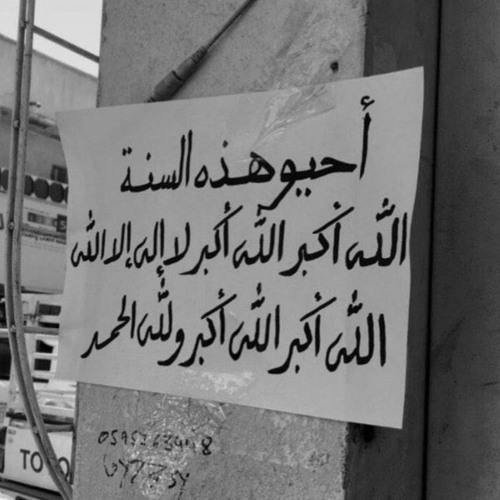 أحيو هذه السنة
الله أكبر الله أكبر لا إله إلا الله
الله أكبر الله أكبر ولله الحمد
TO